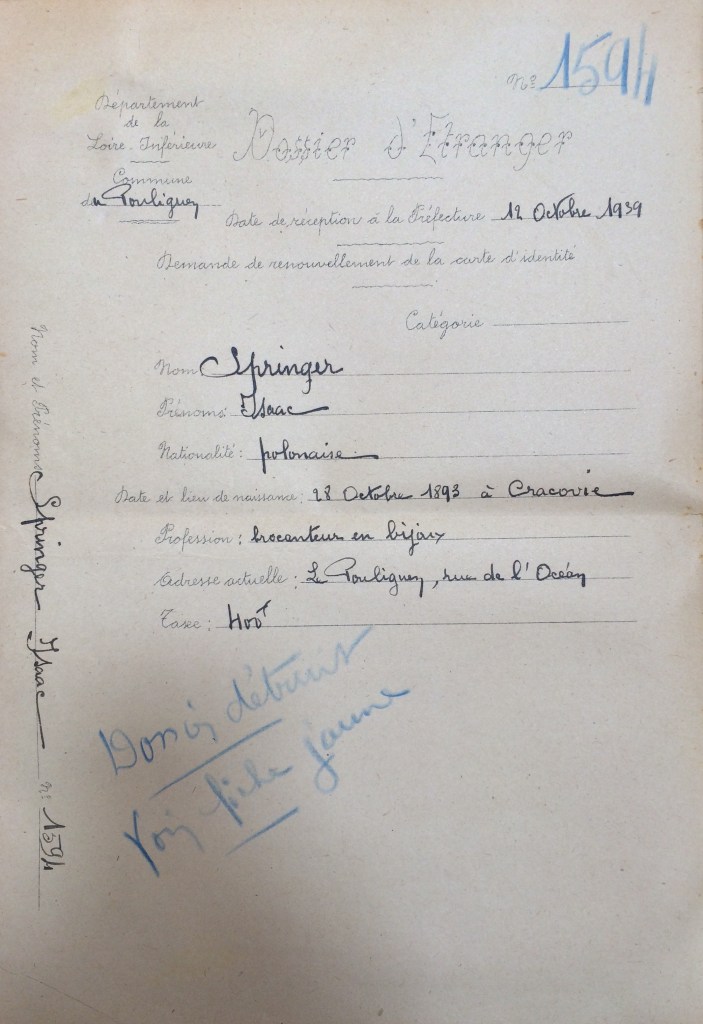 Nº 1594
Département
de la
Loire-Inférieure
Commune
du Pouliguen
Dossier d'Etranger
Date de réception à la Préfecture 12 Octobre 1939
Demande de renouvellement de la carte d'identité
Catégorie
Nom Springer
Prénoms: Isaac
Nationalité: polonaise
Date et lieu de naissance: 28 Octobre 1893 à Cracovie
Profession: brocanteur en bijoux
Adresse actuelle: Le Pouliguen, rue de l'Océan
Taxe: 400f
Dossier détruit
Voir fiche jaune
Nom et Prénoms Springer Isaac Nº 1594